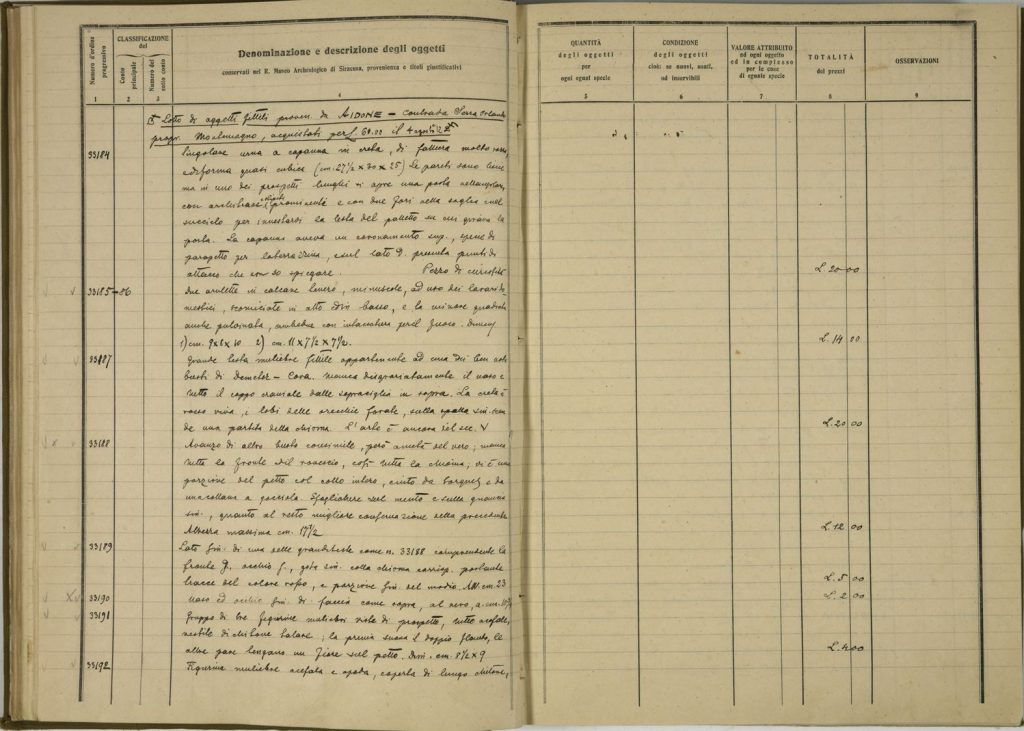 Numero d'ordine progressivo
CLASSIFICAZIONE del
Conto principale
Numero del sotto conto
Denominazione e descrizione degli oggetti
conservati nel R. Museo Archeologico di Siracusa, provenienza e titoli giustificativi
QUANTITÀ degli oggetti per ogni egual specie
CONDIZIONE degli oggetti cioè: se nuovi, usati, od inservibili
VALORE ATTRIBUITO ad ogni oggetto ed in complesso per le cose di eguale specie
TOTALITÀ dei prezzi
OSSERVAZIONI
1 2 3 4 5 6 7 8 9
Lotto di oggetti fittili proven. da AIDONE – contrada Serra Orlando
propr. acquistati per L. 60.00 il 4
33184 Singolare urna a capanna in creta, di fattura molto rozza,
e di forma quasi cubica (cm. 27 1/2 × 30 × 25) Le pareti sono
ma in uno dei prospetti lunghi si apre una porta rettangolare
con architrave prominente e con due fori nella soglia e nel
per innestarsi la testa del paletto su cui girava la
porta. La capanna aveva un coronamento sup., specie di
parapetto per la terrazzina, e sul lato D. presenta punti di
attacco che non so spiegare. Pezzo di curiosità L. 20 00
33185–86 due arulette in calcare tenero, minuscole, ad uso dei larari do-
mestici, scorniciate in alto ed in basso, e la minore quadrata
anche pulvinata, ambedue con incavatura per il fuoco. Dimens.
1) cm. 9×8×10 2) cm. 11 × 7 1/2 × 7 1/2. L. 14 00
33187 Grande testa muliebre fittile appartenente ad uno dei ben noti
busti di Demeter – Cora. Manca disgraziatamente il naso e
tutto il ceppo craniale dalle sopraciglia in sopra. La creta è
rosso viva, i lobi delle orecchie forate, sulla spalla sin. scen-
de una partita della chioma. L'arte è ancora del sec. V L. 20 00
33188 Avanzo di altro busto consimile, però a metà del vero; manca
tutta la fronte ed il naso, così tutta la chioma; vi è una
porzione del petto col collo intero, cinto da torques e da
una collana a gocciola. Sfaldature sul mento e sulla guancia
sin., quanto al resto migliore conservazione della precedente
Altezza massima cm. 17 1/2 L. 12 00
33189 Lato sin. di una delle grandi teste come n. 33188 comprendente la
fronte, occhio, gota sin. colla chioma corrisp. portante
tracce del colore rosso, e porzione sin. del modio. Alt. cm. 23 L. 5 00
33190 Naso ed occhio sin. di faccia come sopra, al vero, a. cm. L. 2 00
33191 Gruppo di tre figurine muliebri viste di prospetto, tutte acefale,
vestite di chitone talare; la prima suona il doppio flauto, le
altre pare tengano un fiore sul petto. Dim. cm. 8 1/2 × 9 L. 4 00
33192 Figurina muliebre acefala e apoda, coperta di lungo chitone,